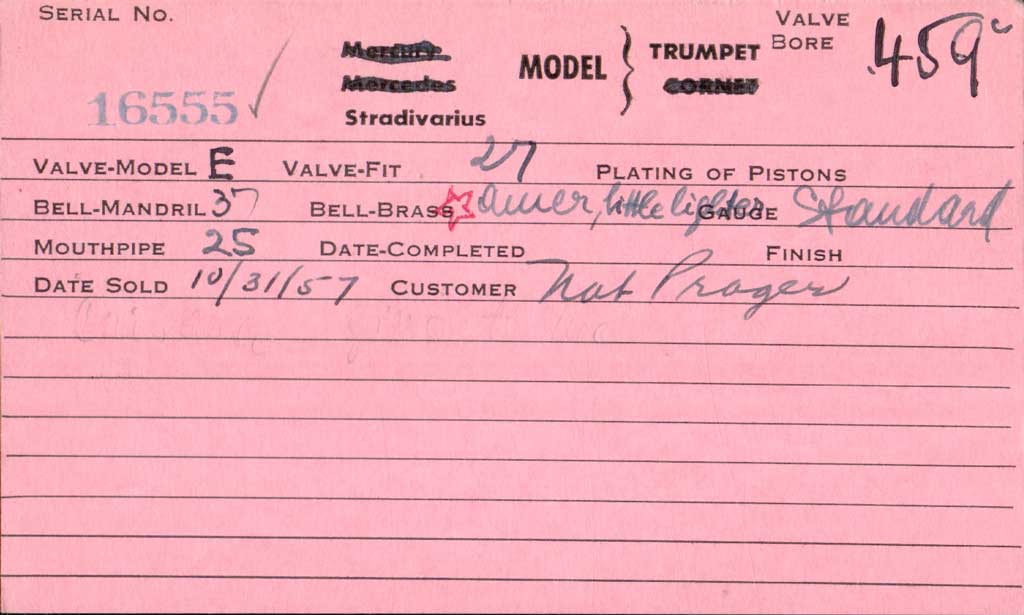 SERIAL NO. 16555 ✓
Mercury
Mercedes
Stradivarius
MODEL } TRUMPET
CORNET
VALVE BORE .459"
VALVE-MODEL E VALVE-FIT 27 PLATING OF PISTONS
BELL-MANDRIL 37 BELL-BRASS ☆ Amer, little lighter GAUGE Standard
MOUTHPIPE 25 DATE-COMPLETED FINISH
DATE SOLD 10/31/57 CUSTOMER Nat Prager